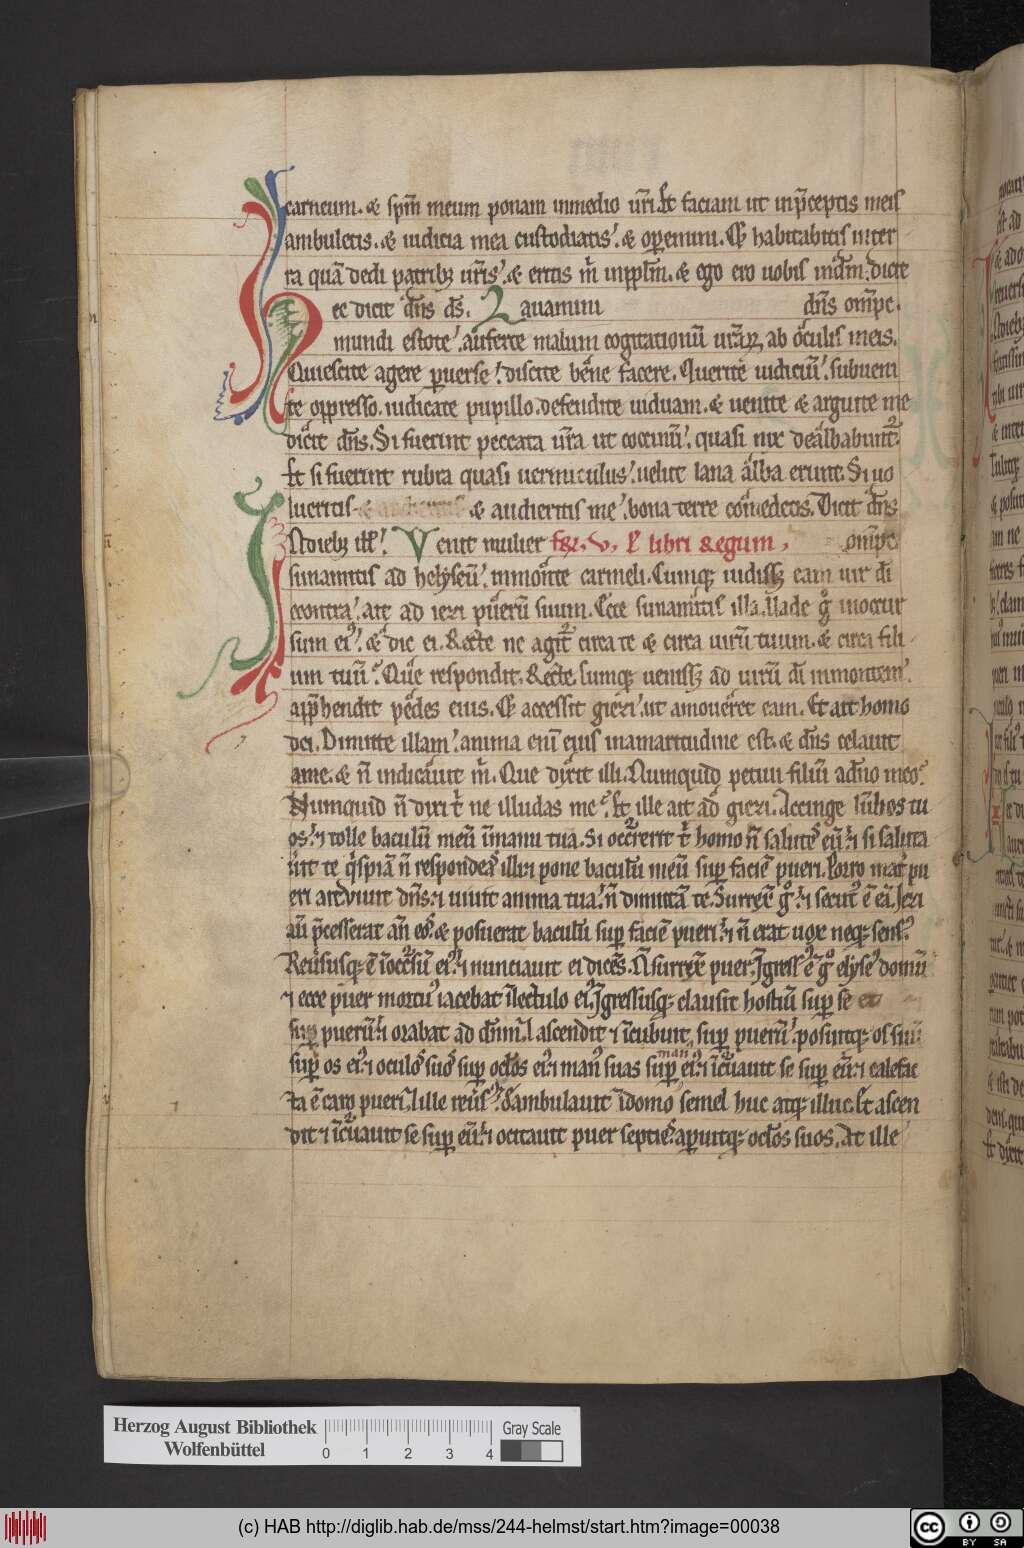 carneum. & spm̄ meum ponam inmedio ur̄i. Et faciam ut inp̄ceptis meis
ambuletis. & iudicia mea custodiatis. & operemini. Et habitabitis inter
ra quā dedi patribꝫ ur̄is. & eritis m̄ inpplm̄. & ego ero uobis indm̄. dicit
ec dicit dn̄s ds̄. Lauamini dn̄s omp̄c.
mundi estote. auferte malum cogitationū ur̄arꝝ ab oculis meis.
Quiescite agere ꝑuerse. discite bene facere. Querite iudiciū. subueni
te oppresso. iudicate pupillo. defendite uiduam. & uenite & arguite me
dicit dn̄s. Si fuerint peccata ur̄a ut coccinū. quasi nix dealbabunt᷑.
Et si fuerint rubra quasi uermiculus. uelut lana alba erunt. Si uo
lueritis & audieritis me. bona terre comedetis. Dicit dn̄s
Jndiebꝫ ill̄. Venit mulier libri Regum. omp̄c
sunamitis ad helyseū. inmonte carmeli. Cumqꝫ uidissꝫ eam uir dī
econtra. ait ad iezi puerū suum. Ecce sunamitis illa. Uade gͦ inoccur
sum eiꝰ. & dic ei. Recte ne agit᷑ circa te & circa uirū tuum. & circa fili
um tuū. Que respondit. Recte. Cumqꝫ uenissꝫ ad uirū dī inmontem.
app̄hendit pedes eius. Et accessit giezi. ut amoueret eam. Et ait homo
dei. Dimitte illam. anima eni eius inamaritudine est. & dn̄s celauit
ame. & n̄ indicauit m̄. Que dixit illi. Numquid petiui filiū adn̄o meo.
Numquid n̄ dixi t̄ ne illudas me. Et ille ait ad giezi. Accinge lūbos tu
os. ⁊ tolle baculū meū īmanu tua. Si occrrerit t̄ homo n̄ salutes eū. ⁊ si saluta
uit te qͥspiā n̄ respondeas illi. ⁊ pone baculū meū suꝑ faciē pueri. Porro mat̄ pu
eri ait. Viuit dn̄s. ⁊ uiuit anima tua. n̄ dimittā te. Surrexit gͦ. ⁊ secutꝰ ē eā. Jezi
aū p̄cesserat an̄ eos. & posuerat baculū suꝑ faciē pueri. ⁊ n̄ erat uox neqꝫ sensꝰ.
Reūsusqꝫ ē īoccsū eiꝰ. ⁊ nunciauit ei dicēs. N̄ surrexit puer. Jgressꝰ ē gͦ elyseꝰ domū
⁊ ecce puer mortuꝰ iacebat īlectulo eiꝰ. Jgressusqꝫ clausit hostiū suꝑ se et
suꝑ puerū. ⁊ orabat ad dn̄m. ascendit ⁊ īcubuit suꝑ puerū. posuitqꝫ os suū
suꝑ os eiꝰ. ⁊ oculos suos suꝑ oclos eiꝰ. ⁊ manꝰ suas suꝑ manꝰ eiꝰ. ⁊ īcuauit se suꝑ eū. ⁊ calefac
ta ē caro pueri. ille reūsꝰ. deambulauit īdomo semel huc atqꝫ illuc. Et ascen
dit ⁊ īcuauit se suꝑ eū. ⁊ ocitauit puer septies. aꝑuitqꝫ oclos suos. At ille
Herzog August Bibliothek
Wolfenbüttel
0 1 2 3 4
Gray Scale
(c) HAB http://diglib.hab.de/mss/244-helmst/start.htm?image=00038
cc BY SA